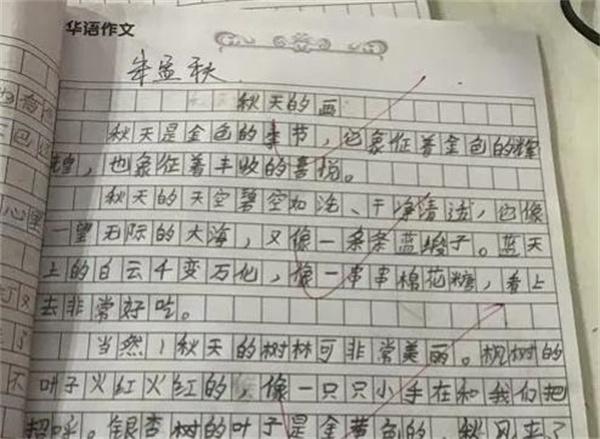 华语作文
秋天的画
秋天是金色的季节，它象征着金色的辉
煌，也象征着丰收的喜悦。
秋天的天空碧空如洗、干净清透，它像
一望无际的大海，又像一条条蓝缎子。蓝天
上的白云千变万化，像一串串棉花糖，看上
去非常好吃。
当然！秋天的树林可非常美丽。枫树的
叶子火红火红的，像一只只小手在和我们把
招呼。银杏树的叶子是金黄色的，秋风来了